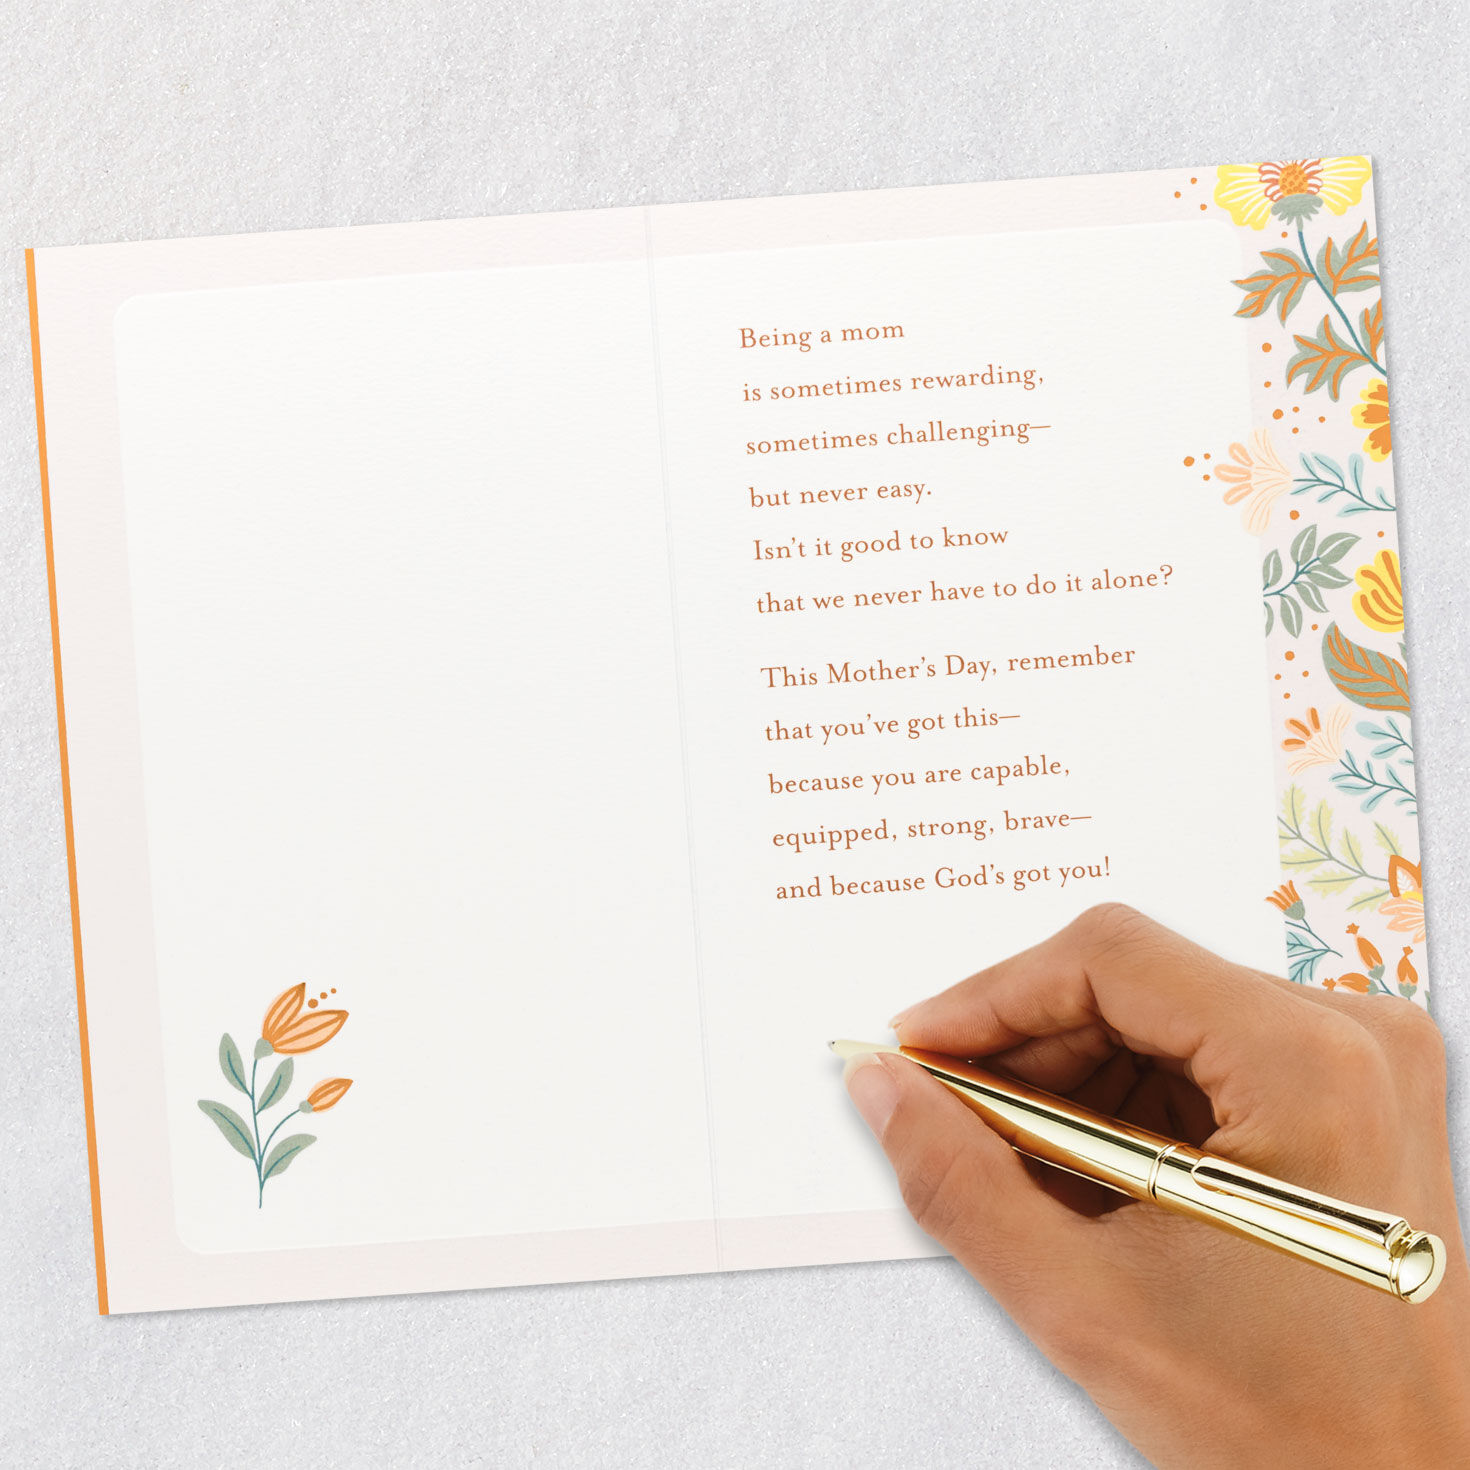 Being a mom
is sometimes rewarding,
sometimes challenging—
but never easy.
Isn’t it good to know
that we never have to do it alone?
This Mother’s Day, remember
that you’ve got this—
because you are capable,
equipped, strong, brave—
and because God’s got you!